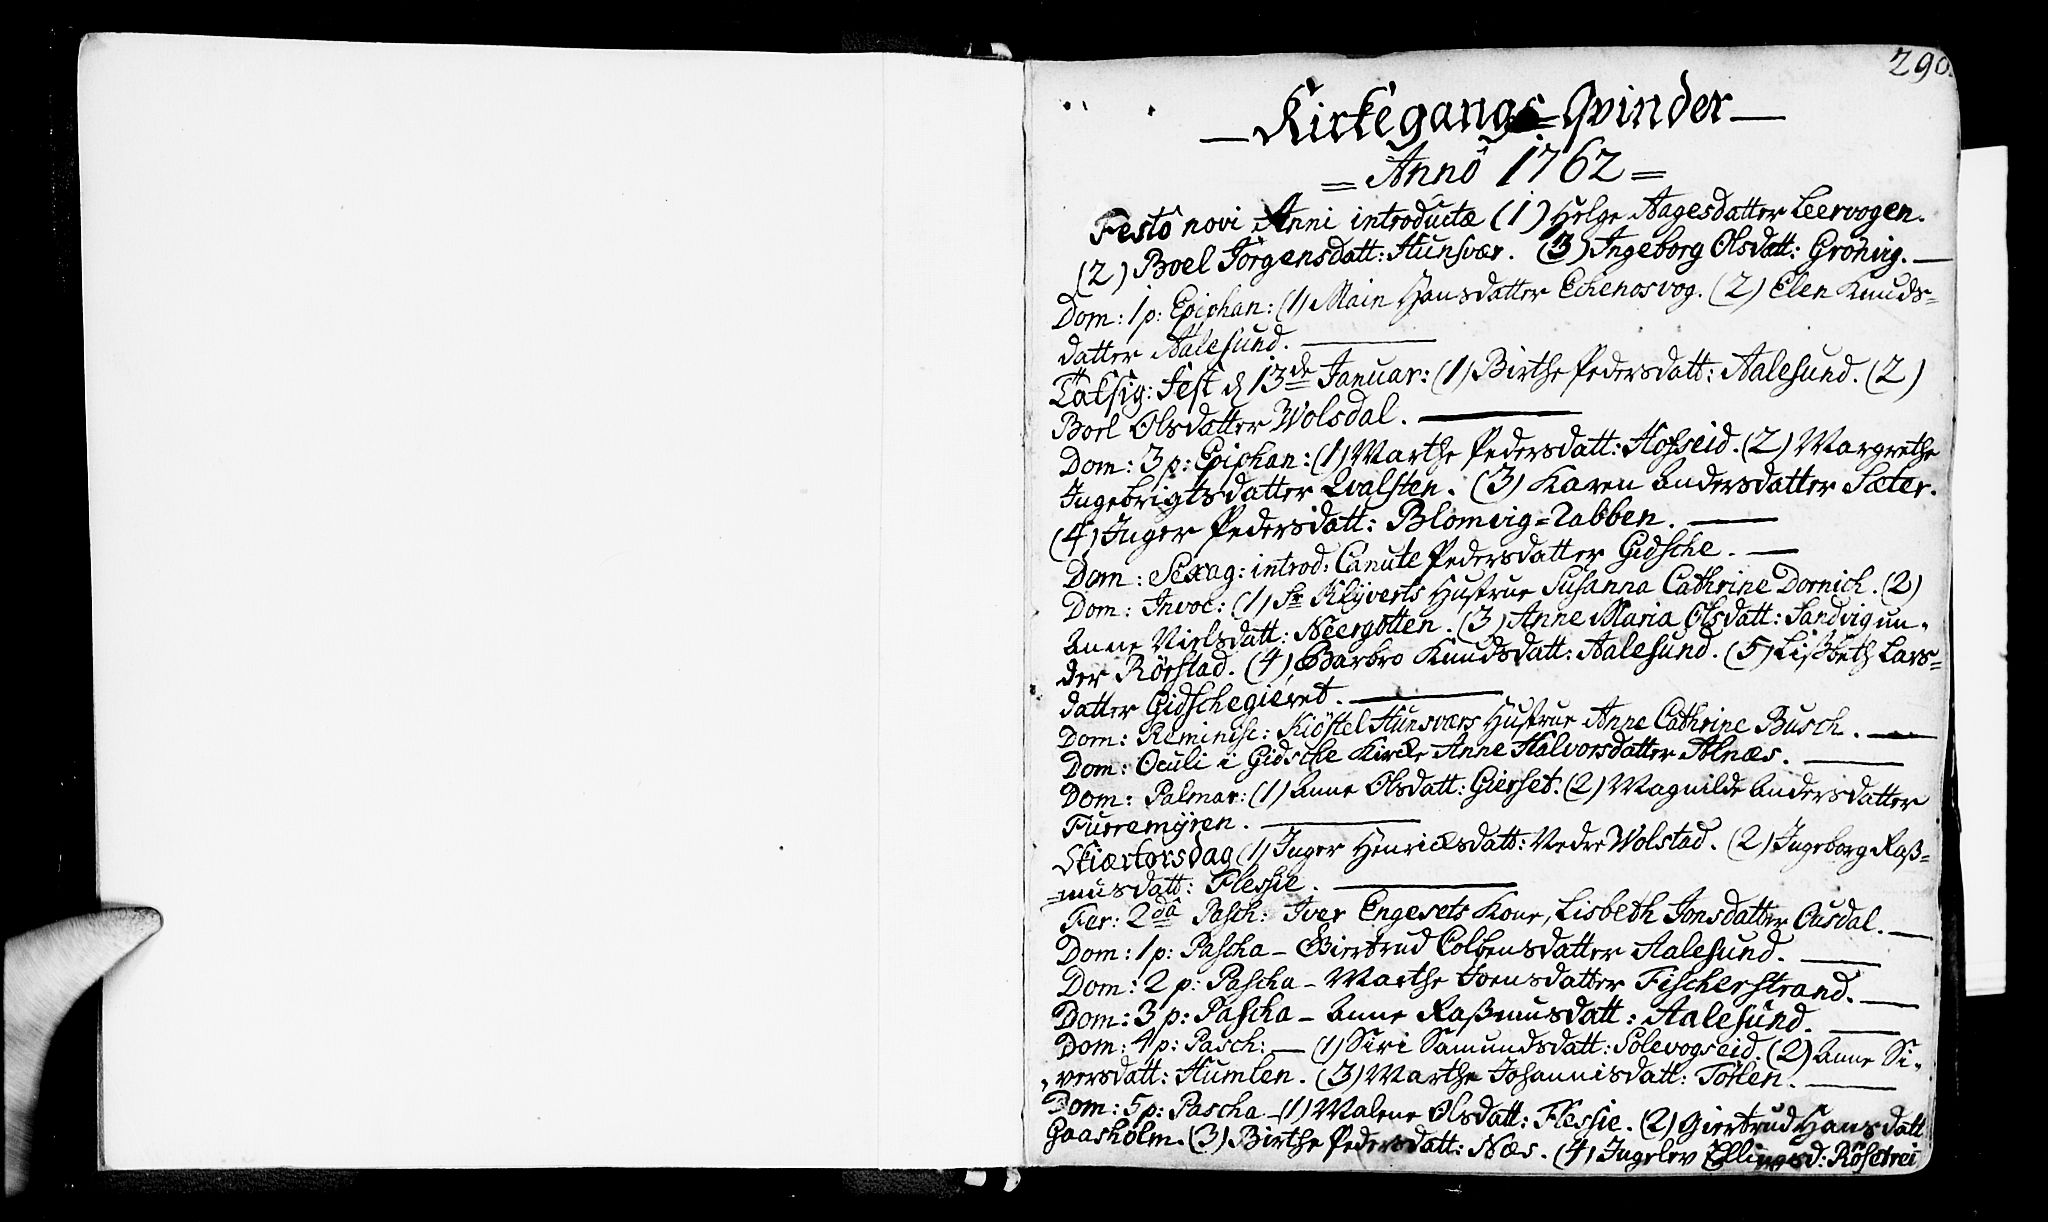 290.
Kirkegangs=Qvinder
= Anno 1762 =
Festo novi Anni introductæ (1) Helge Aagesdatter Leervogen.
(2) Boel Jörgensdatt: Hunsvær. (3) Ingeborg Olsdatt: Grönvig.
Dom: 1 p: Epiphan: (1) Marn Hansdatter Echenosvog. (2) Elen Knuds=
datter Aalesund.
Taksig: Fest d 13de Januar: (1) Birthe Pedersdatt: Aalesund. (2)
Boel Olsdatter Wolsdal.
Dom: 3 p: Epiphan: (1) Marthe Pedersdatt: Hofseid. (2) Margrethe
Ingebrigtsdatter Qvalsten. (3) Karen Andersdatter Sæter.
(4) Inger Pedersdatt: Blomvig=Rabben.
Dom: Sexag: introd: Canute Pedersdatter Gidsche.
Dom: Invoc: (1) Sr Klyverts Hustrue Susanna Cathrine Dornich. (2)
Anne Nielsdatt: Neergotten. (3) Anne Maria Olsdatt: Sandvig un-
der Rörstad. (4) Barbro Knudsdatt: Aalesund. (5) Lisbeth Lars=
datter Gidschegieret.
Dom: Reminisc: Kiöstel Hunsværs Hustrue Anne Cathrine Busch.
Dom: Oculi i Gidsche Kircke Anne Halvorsdatter Alnæs.
Dom: Palmar: (1) Anne Olsdatt: Gierset. (2) Magnilde Andersdatter
Furremyren.
Skiærtorsdag (1) Inger Henricksdatt: Nedre Wolstad. (2) Ingeborg Raß=
=musdatt: Flessie.
Fer: 2da Pasch: Iver Engesets Kone, Lisbeth Jonsdatter Ousdal.
Dom: 1 p: Pascha - Giertrud Colbensdatter Aalesund.
Dom: 2 p: Pascha - Marthe Joensdatter Fischerstrand.
Dom: 3 p: Pascha - Anne Raßmusdatt: Aalesund.
Dom: 4 p: Pasch: - (1) Siri Samundsdatt: Solevogseid. (2) Anne Si-
versdatt: Humlen. (3) Marthe Johannisdatt: Töflen.
Dom: 5 p: Pascha - (1) Malene Olsdatt: Flessie. (2) Giertrud Hansdatt
Gaasholm. (3) Birthe Pedersdatt: Næs. (4) Ingelev Ellingsd: Rösetrei